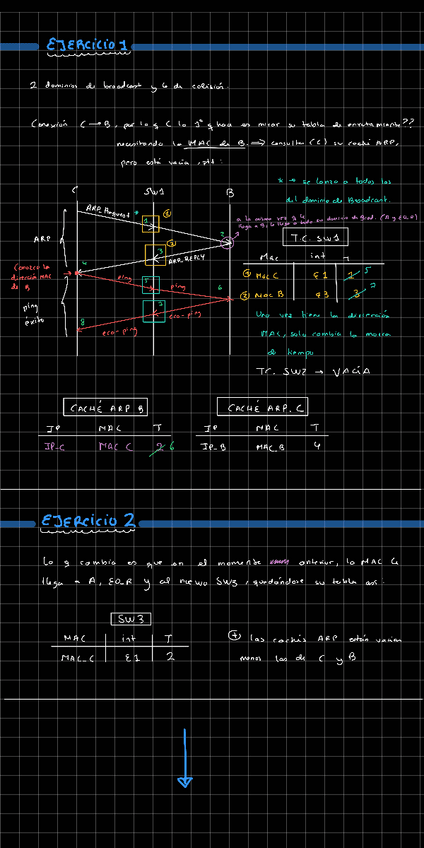 EJERCICIO 1
2 dominios de broadcast y 6 de colisión.
Conexión C → B, por lo q C lo 1º q hará es mirar su tabla de enrutamiento??
necesitando la MAC de B. → consulta (C) su caché ARP,
pero está vacía, ptt:
* → se lanza a todos los
del dominio de Broadcast.
C SW1 B
ARP Request *
1
2
a la misma vez q le
llega a B, le llega a todo su dominio de Broad.
ARP
3
ARP REPLY
4
Conozco la
dirección MAC
de B
ping
5
ping
6
ping
éxito
7
eco-ping
eco-ping
8
T.C. SW1
MAC int T
① MAC C E1 1 5
② MAC B E3 3 7
Una vez tiene la dirección
MAC, solo cambia la marca
de tiempo
TC. SW2 → VACÍA
CACHÉ ARP B
IP MAC T
IP_C MAC C 2 6
CACHÉ ARP. C
IP MAC T
IP_B MAC_B 4
EJERCICIO 2
Lo q cambia es que en el momento anterior, la MAC C
llega a A, E0_R y al nuevo SW3, quedándose su tabla así:
SW3
MAC int T
MAC_C E1 2
+ Las cachés ARP están vacías
menos las de C y B